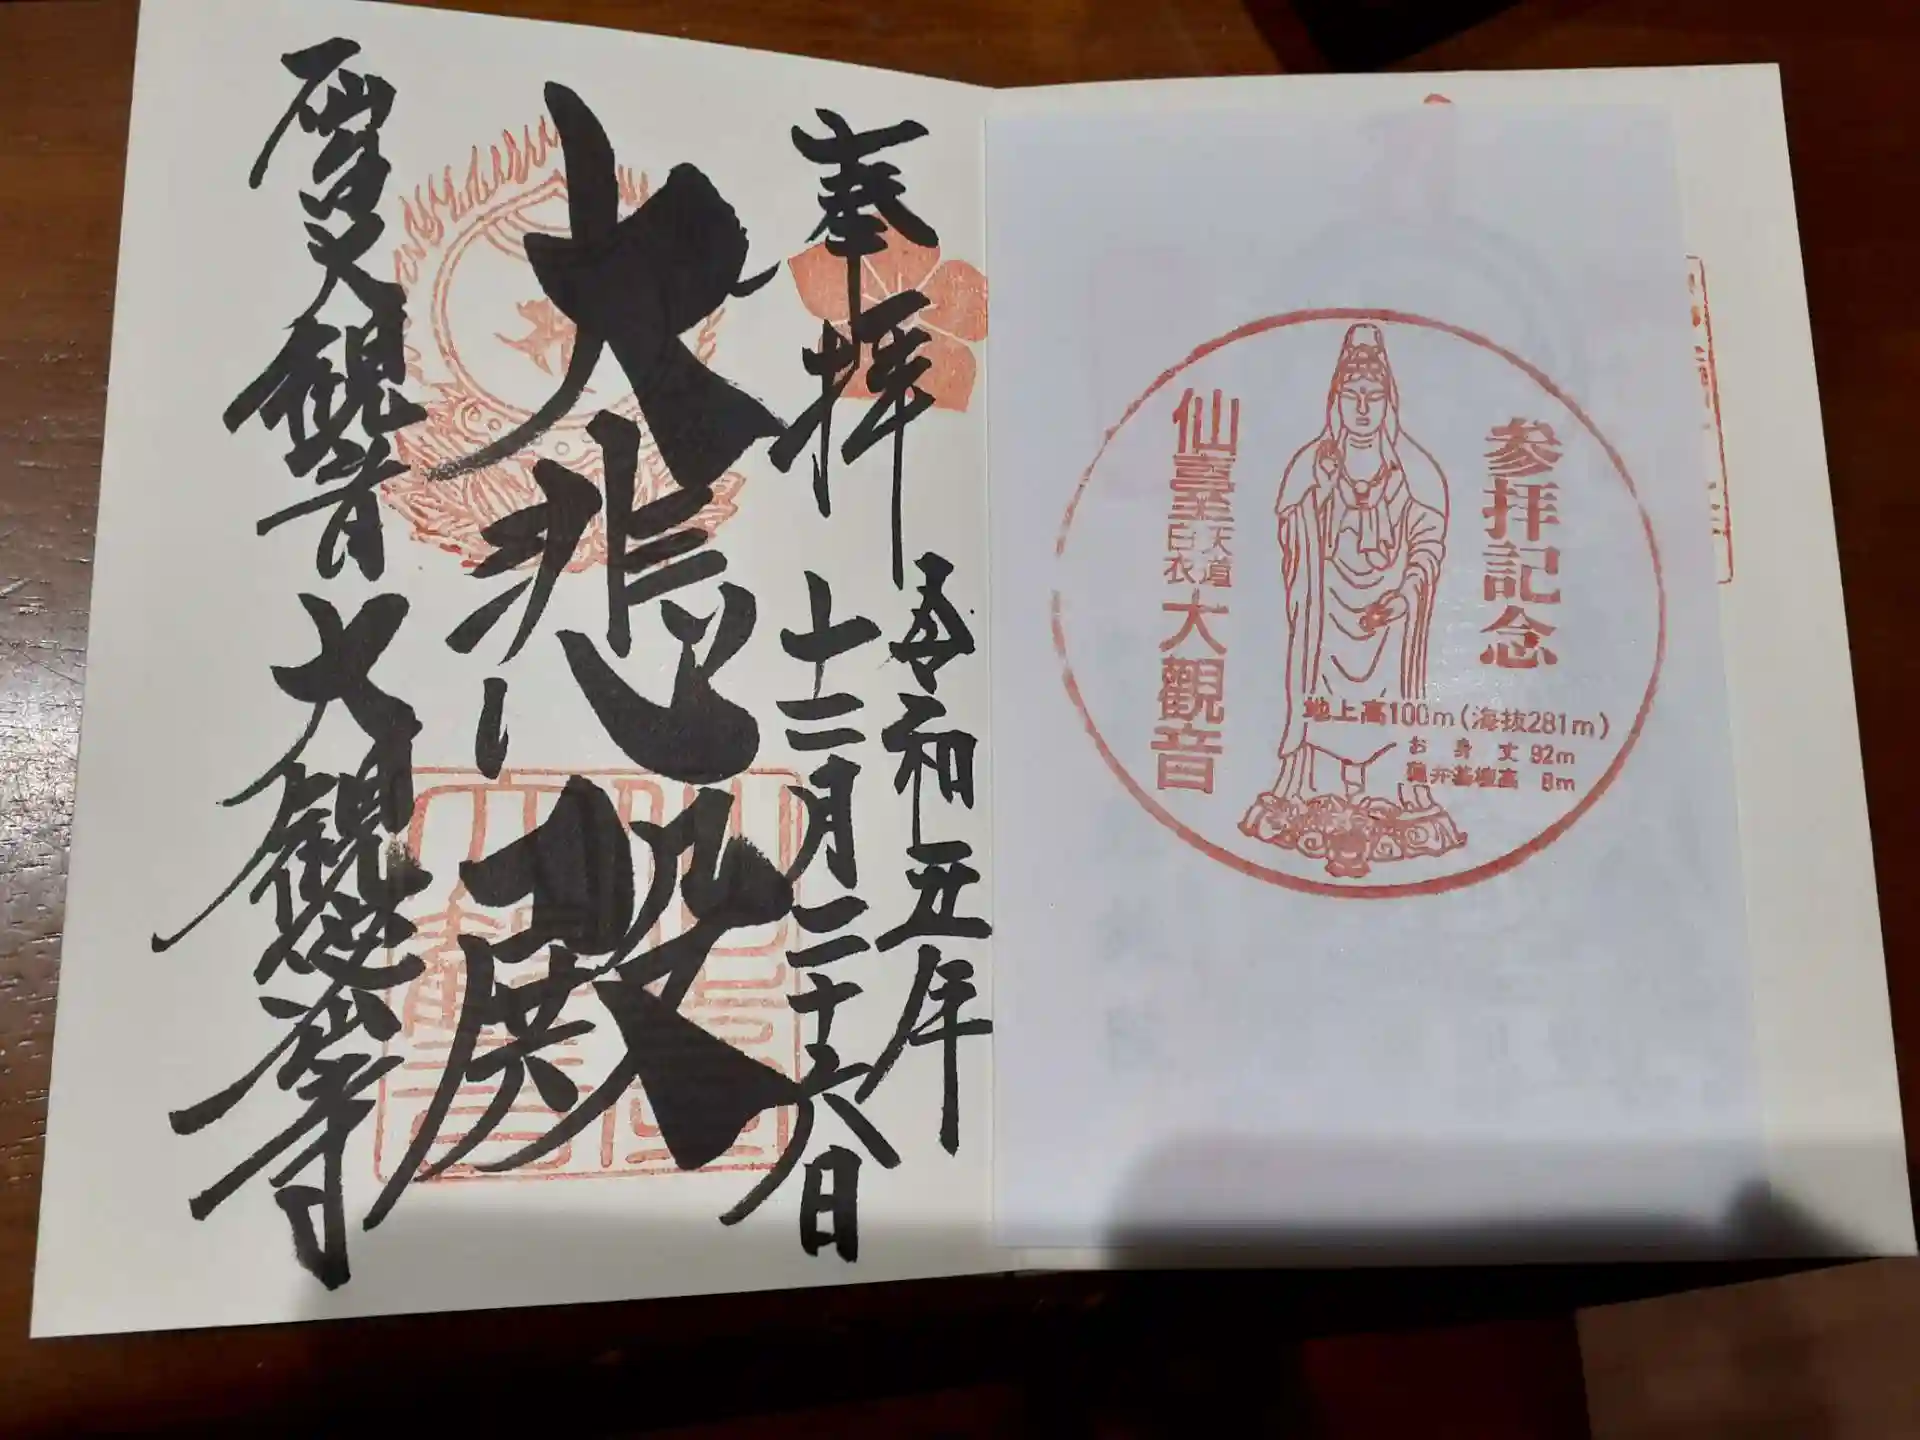 参拝記念
地上高100m(海抜281m)
お身丈 92m
基壇高 8m
仙臺天道白衣大觀音
奉拝
令和五年
十二月二十六日
大悲殿
観音
大観密寺